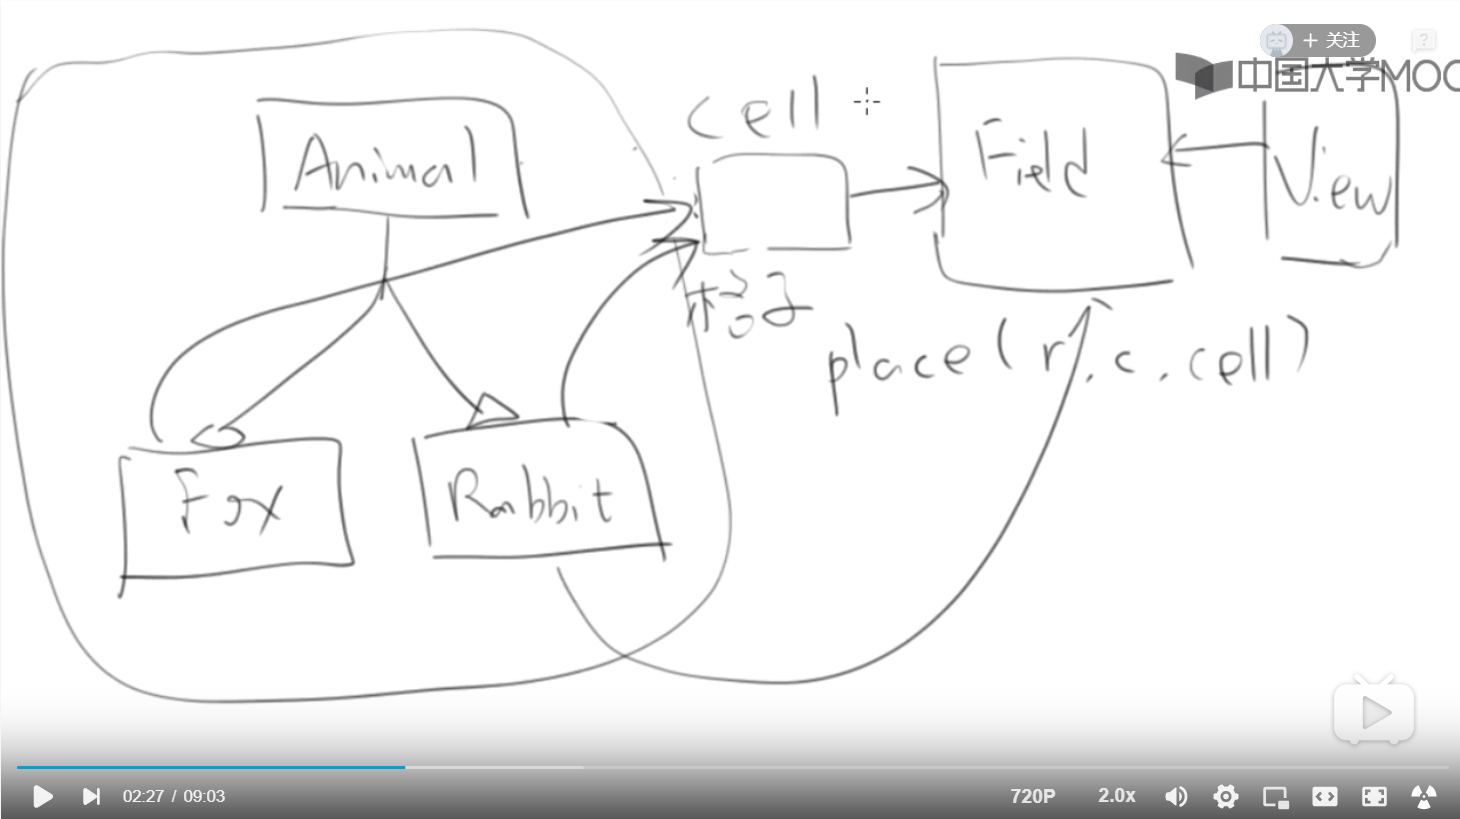 + 关注
?
中国大学MOO
cell
Animal
Field
View
格子
place(r,c,cell)
Fox
Rabbit
02:27 / 09:03
720P
2.0x